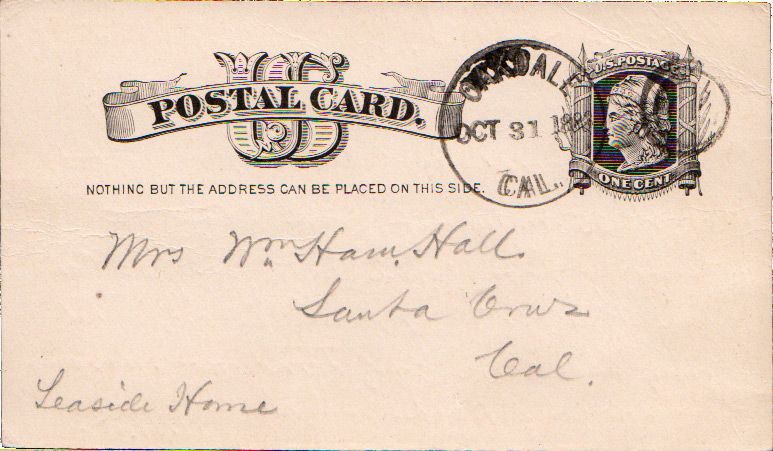 US
POSTAL CARD.
NOTHING BUT THE ADDRESS CAN BE PLACED ON THIS SIDE.
OAKDALE
OCT 31
CAL.
U.S. POSTAGE
ONE CENT
Mrs Wm. Ham. Hall
Santa Cruz
Cal.
Seaside Home